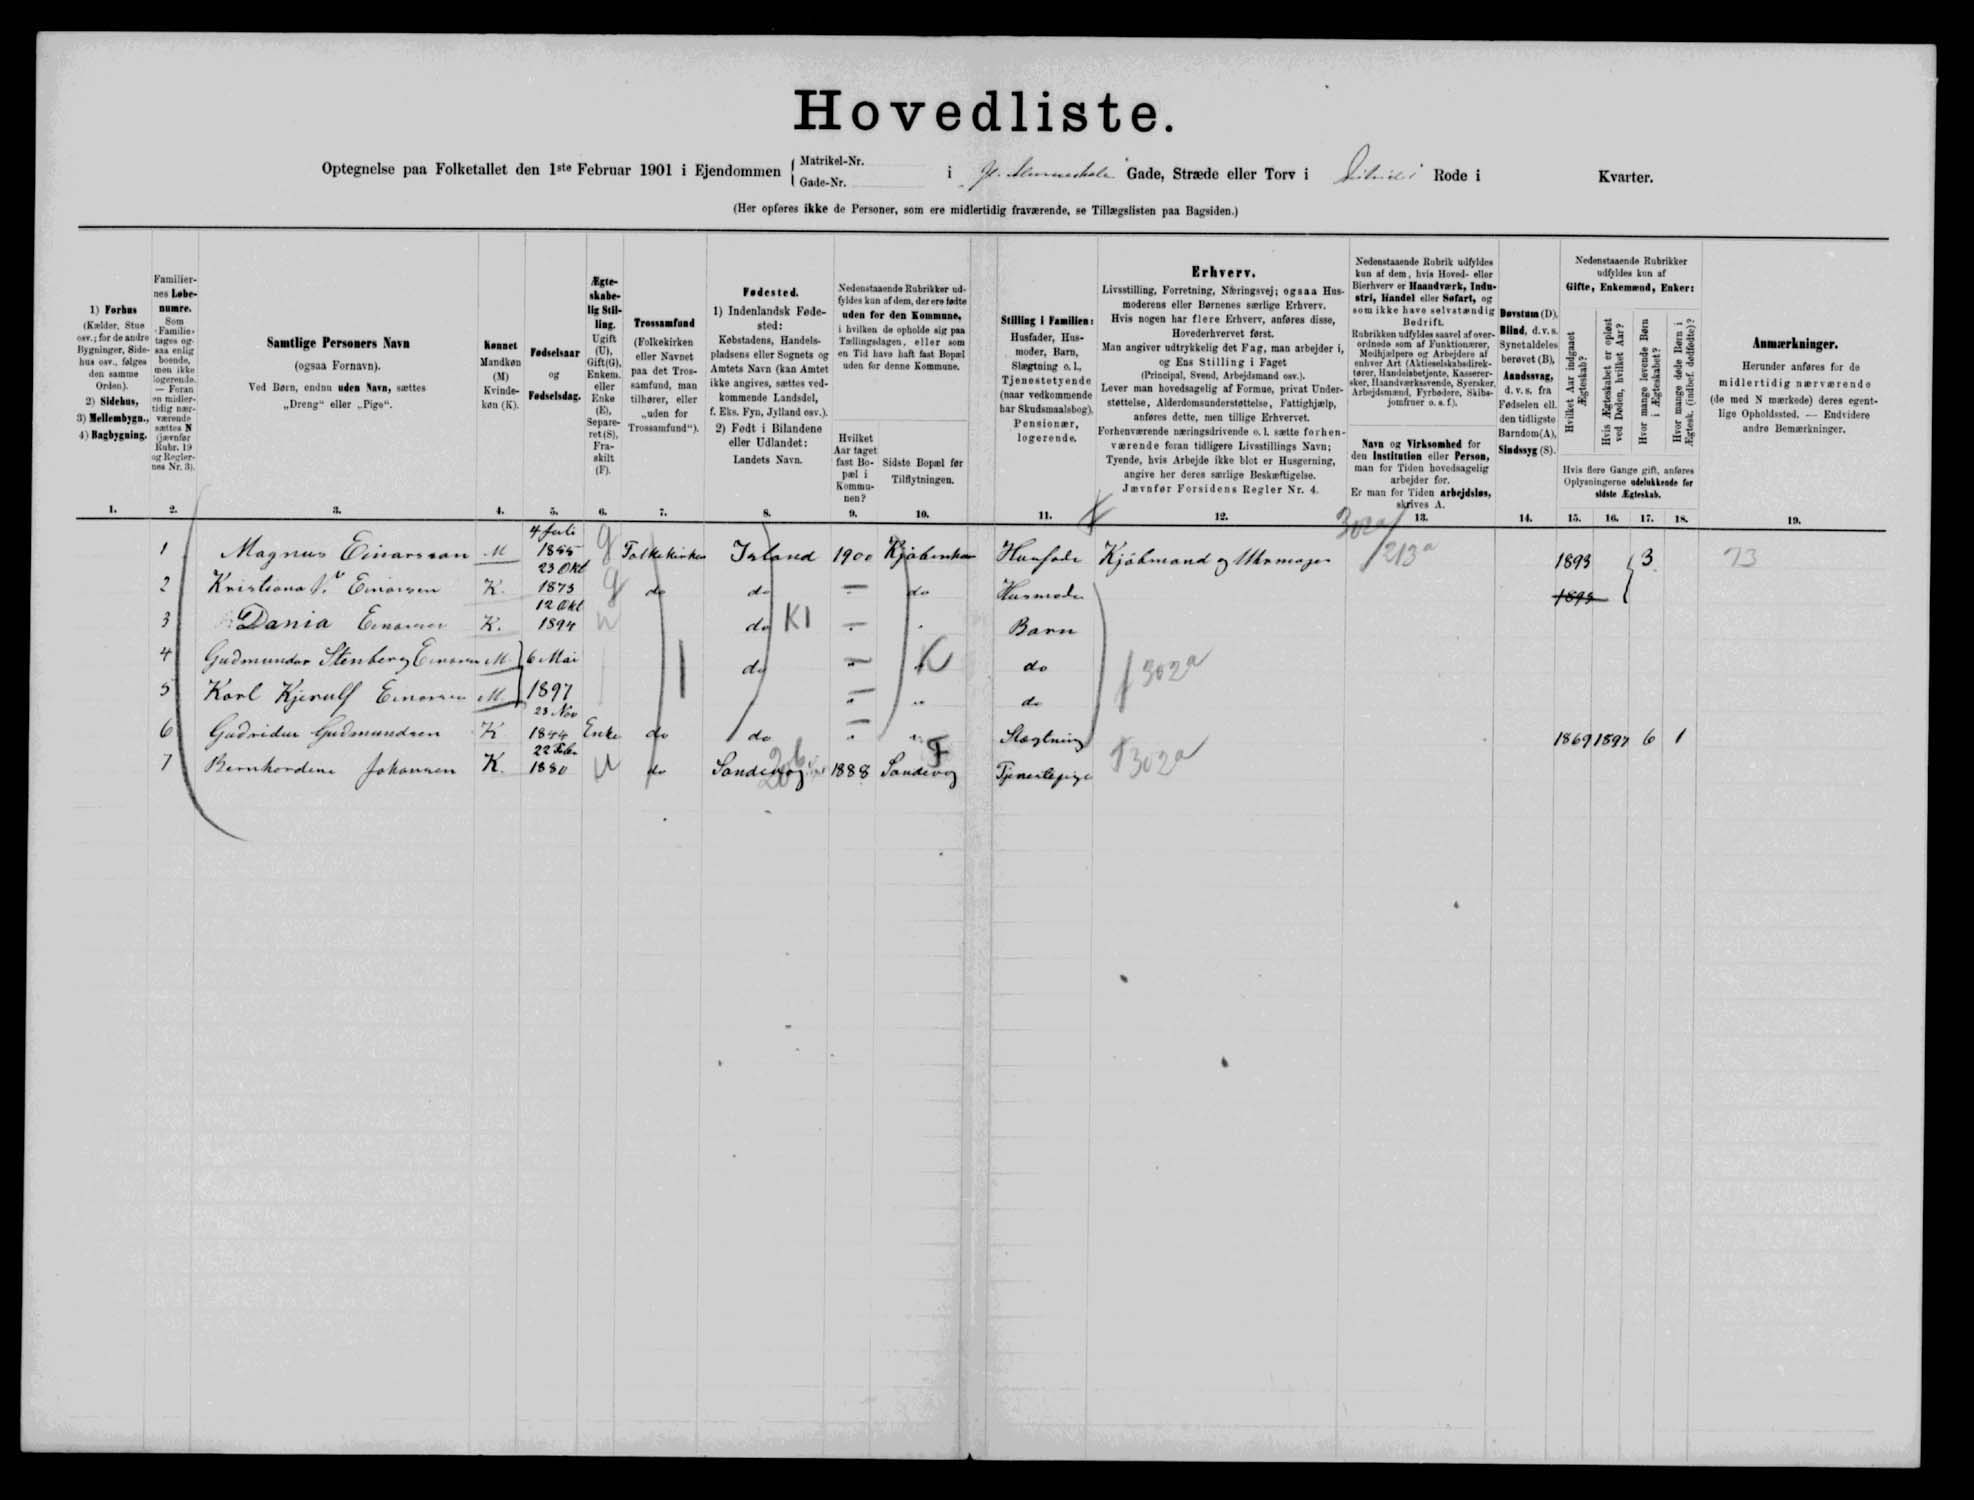 Hovedliste.
Optegnelse paa Folketallet den 1ste Februar 1901 i Ejendommen { Matrikel-Nr. Gade-Nr. i Gade, Stræde eller Torv i Rode i Kvarter.
(Her opføres ikke de Personer, som ere midlertidig fraværende, se Tillægslisten paa Bagsiden.)
1) Forhus (Kælder, Stue osv.; for de andre Bygninger, Sidehus osv., følges den samme Orden). 2) Sidehus, 3) Mellembygn., 4) Bagbygning.
Familiernes Løbenumre. Som Familie tages ogsaa enlig boende, men ikke logerende. — Foran en midlertidig nærværende sættes N (jævnfør Rubr. 19 og Reglernes Nr. 3).
Samtlige Personers Navn (ogsaa Fornavn). Ved Børn, endnu uden Navn, sættes „Dreng“ eller „Pige“.
Kønnet Mandkøn (M) Kvindekøn (K).
Fødselsaar og Fødselsdag.
Ægteskabelig Stilling. Ugift (U), Gift (G), Enkem. eller Enke (E), Separeret (S), Fraskilt (F).
Trossamfund (Folkekirken eller Navnet paa det Trossamfund, man tilhører, eller „uden for Trossamfund“).
Fødested. 1) Indenlandsk Fødested: Købstadens, Handelspladsens eller Sognets og Amtets Navn (kan Amtet ikke angives, sættes vedkommende Landsdel, f. Eks. Fyn, Jylland osv.). 2) Født i Bilandene eller Udlandet: Landets Navn.
Nedenstaaende Rubrikker udfyldes kun af dem, der ere fødte uden for den Kommune, i hvilken de opholde sig paa Tællingsdagen, eller som en Tid have haft fast Bopæl uden for denne Kommune.
Hvilket Aar taget fast Bopæl i Kommunen?
Sidste Bopæl før Tilflytningen.
Stilling i Familien: Husfader, Husmoder, Barn, Slægtning o. l., Tjenestetyende (naar vedkommende har Skudsmaalsbog), Pensionær, logerende.
Erhverv.
Livsstilling, Forretning, Næringsvej; ogsaa Husmoderens eller Børnenes særlige Erhverv.
Hvis nogen har flere Erhverv, anføres disse, Hovederhvervet først.
Man angiver udtrykkelig det Fag, man arbejder i, og Ens Stilling i Faget (Principal, Svend, Arbejdsmand osv.).
Lever man hovedsagelig af Formue, privat Understøttelse, Alderdomsunderstøttelse, Fattighjælp, anføres dette, men tillige Erhvervet.
Forhenværende næringsdrivende o. l. sætte forhenværende foran tidligere Livsstillings Navn; Tyende, hvis Arbejde ikke blot er Husgerning, angive her deres særlige Beskæftigelse.
Jævnfør Forsidens Regler Nr. 4.
Nedenstaaende Rubrik udfyldes kun af dem, hvis Hoved- eller Bierhverv er Haandværk, Industri, Handel eller Søfart, og som ikke have selvstændig Bedrift.
Rubrikken udfyldes saavel af overordnede som af Funktionærer, Medhjælpere og Arbejdere af enhver Art (Aktieselskabsdirektører, Handelsbetjente, Kasserersker, Haandværkssvende, Syersker, Arbejdsmænd, Fyrbødere, Skibsjomfruer o. s. f.).
Navn og Virksomhed for den Institution eller Person, man for Tiden hovedsagelig arbejder for.
Er man for Tiden arbejdsløs, skrives A.
Døvstum (D), Blind, d. v. s. Synet aldeles berøvet (B), Aandssvag, d. v. s. fra Fødselen ell. den tidligste Barndom (A), Sindssyg (S).
Nedenstaaende Rubrikker udfyldes kun af Gifte, Enkemænd, Enker:
Hvilket Aar indgaaet Ægteskab?
Hvis Ægteskabet er opløst ved Døden, hvilket Aar?
Hvor mange levende Børn i Ægteskabet?
Hvor mange døde Børn i Ægtesk. (indbef. dødfødte)?
Hvis flere Gange gift, anføres Oplysningerne udelukkende for sidste Ægteskab.
Anmærkninger.
Herunder anføres for de midlertidig nærværende (de med N mærkede) deres egentlige Opholdssted. — Endvidere andre Bemærkninger.
1. 2. 3. 4. 5. 6. 7. 8. 9. 10. 11. 12. 13. 14. 15. 16. 17. 18. 19.
1 Magnus Einarsson M 4 Juli 1855 g Folkekirken Island 1900 Kjøbenhavn Husfader Kjøbmand og Uhrmager 302a/213a 1893 3 73
2 Kristiana Einarsen K. 23 Okt 1873 g do do " do Husmoder 1893
3 Dania Einarsen K. 12 Okt 1894 u do K1 " " Barn
4 Gudmundur Stenberg Einarsen M. 6 Mai do " K do 302a
5 Karl Kjerulf Einarsen M 1897 " " do
6 Gudridur Gudmundsen K 23 Nov 1844 Enke do do " " Slægtning 1869 1897 6 1
7 Bernhardene Johansen K. 22 Febr 1880 U do Sandevog 1888 Sandevog F Tjenestepige T302a